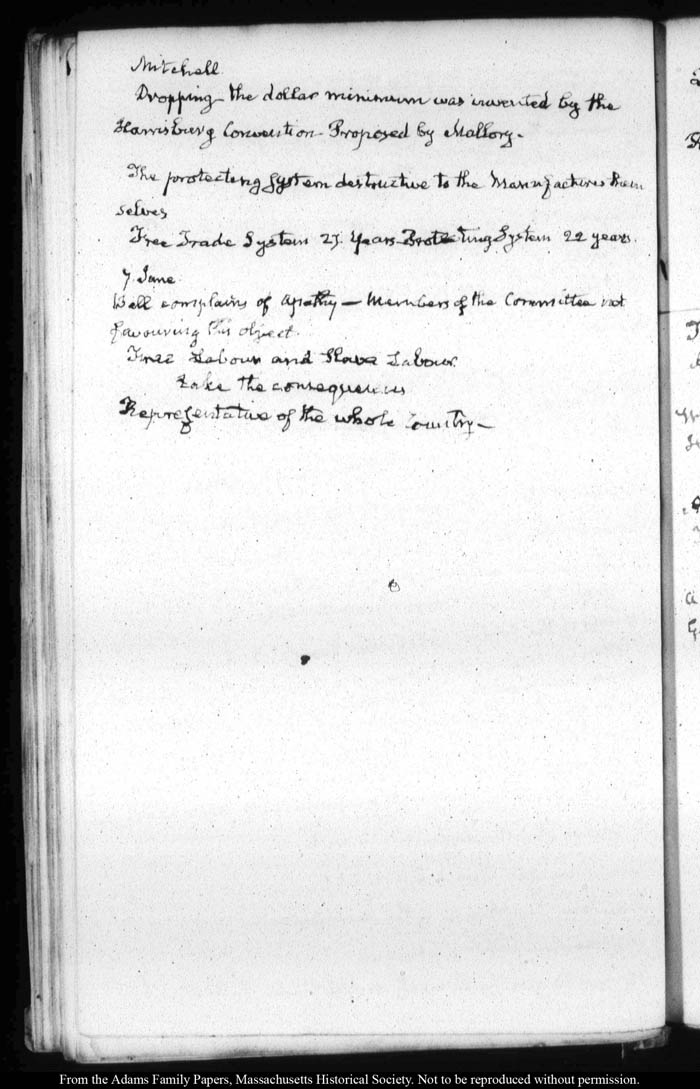 Mitchell.
Dropping the dollar minimum was invented by the
Harrisburg Convention - Proposed by Mallory.
The protecting System destructive to the Manufactures them
selves
Free Trade System 25. Years Protecting System 22 years.
7. June.
Bell complains of apathy — Members of the Committee not
favouring his object.
Free Labour and Slave Labour.
take the consequences
Representative of the whole Country —
From the Adams Family Papers, Massachusetts Historical Society. Not to be reproduced without permission.